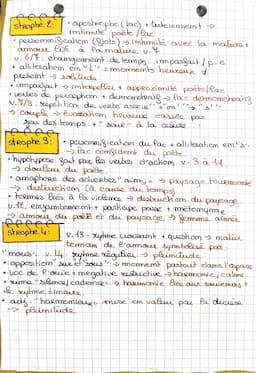 strophe 2: • apostrophe (lac) + tutoiement →
intimité poète / lac
• personnification (flots) → intimité avec la nature +
amour lié à la nature v. 7
v. 6/7 : changement de temps imparfait / p. c
+ allitération en "L" : = moments heureux ≠
présent → solitude
• imparfait → + approximité poète/lac
• verbes de perception + démonstratifs →
v. 7/8 : répétition du verbe "m" "s"
→ couple → évocation heureuse cassée par
peu des temps + "seul" à la césure
strophe 3: • personnification du lac + allitération en "s"
→ lac confident du poète
• hypotypose fait par les verbes d'action v. 3 à 11
→ douleur du poète
• anaphore des adverbes "ainsi" → paysage tourmenté
→ destruction (à cause du temps)
• termes liés à la violence → destruction du paysage
v. 12 enjambement + participe passé + métonymie
→ amour du poète et du paysage → femme aimée
strophe 4: v. 13 - rythme croissant + question → nature
témoin de l'amour symbolisé par
"nous". v. 14 : rythme régulier → plénitude
• opposition "sur et sous" → moment partout dans l'espace
• voc de l'ouïe + négative restrictive → harmonie, calme
• rime "silence/cadence" → harmonie liée aux souvenirs +
le rythme binaire
• adj. "harmonieux" mise en valeur par la diérèse
→ plénitude